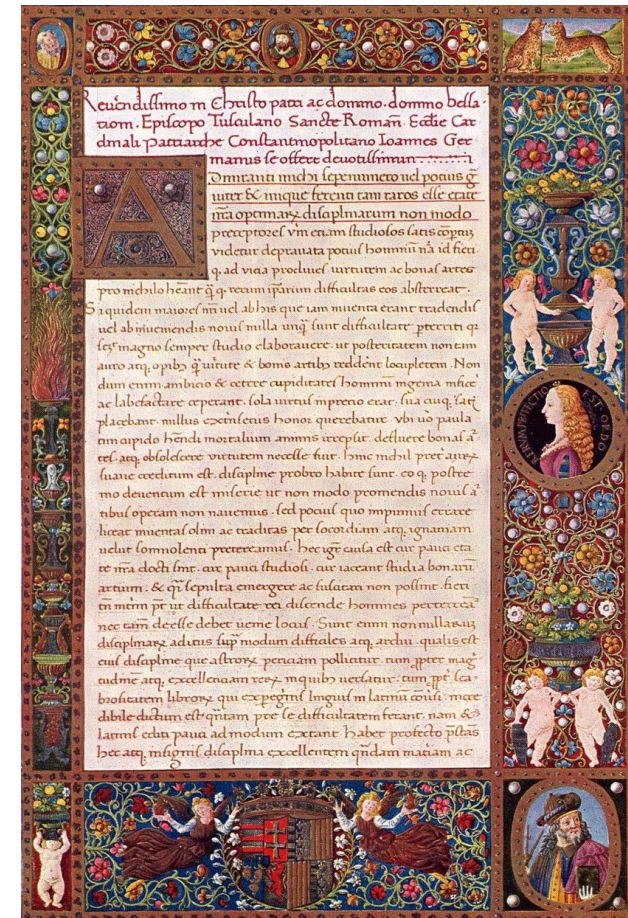 Reuendissimo in Christo patri ac domino. domino bessa-
riom. Episcopo Tusculano Sancte Roman̄ Ecctie Car
dinali Patriarche Constantinopolitano Ioannes Ger
manus se offert deuotissimum
A Dmiranti michi sepenumero uel potius
uiter & inique ferenti tam raros esse etate
nr̄a optimarꝝ disciplinarum non modo
preceptores vm̄ etiam studiosos satis
videtur deprauata potius hominū nā id fieri
q. ad vicia procliues uirtutem ac bonas artes
pro nichilo heant q̄ q. rerum ipsarum difficultas eos absterreat.
Siquidem maiores nr̄i uel ab his que iam inuenta erant tradendis
uel ab inueniendis nouis nulla unq̄ sunt difficultate preterriti
magno semper studio elaborauere. ut posteritatem non tam
auro atq. opibꝰ q̄ uirtute & bonis artibꝰ redderent locupletem. Non
dum enim ambicio & cetere cupiditates hominum ingenia inficere
ac labefactare ceperant. sola uirtus in precio erat. sua cuiq. satis
placebant. nullus extrinsecus honor querebatur. vbi uō paula
tim cupido hēndi mortalium animis irrepsit. defluere bonas ar
tes. atq. obsolescere virtutem necesse fuit. hinc nichil preter aurꝝ
suaue creditum est. discipline probro habite sunt. eo q. postre
mo deuentum est miserie ut non modo promendis nouis ar
tibus operam non nauemus. sed potius quo impunius errare
liceat inuentas olim ac traditas per socordiam atq. ignauiam
uelut somnolenti pretereamus. hec igr̄ causa est cur pauci eta
te nr̄a docti sint. cur pauci studiosi. cur iaceant studia bonarū
artium. & q̄si sepulta emergere ac suscitari non possint. fieri
tn̄ enim pt̄ ut difficultate rei discende homines perterreat
nec tam deesse debet uenie locus. Sunt enim nonnullarꝝ
disciplinarꝝ aditus supͣ modum difficiles atq. ardui. qualis est
eius discipline que astrorꝝ periciam pollicitur. tum ꝓpter mag
tudinē atq. excellenciam rerꝝ in quibꝰ uersatur. tum ꝓpt̄
brositatem librorꝝ. qui ex peregrinis linguis in latinū cōuersi. incre
dibile dictum est quantam pre se difficultatem ferant. nam &
latinis editi pauci ad modum extant. habet profecto
hec atq. insignis disciplina excellentem quandam materiam ac
RERVM PERFECTIO EST ORDO